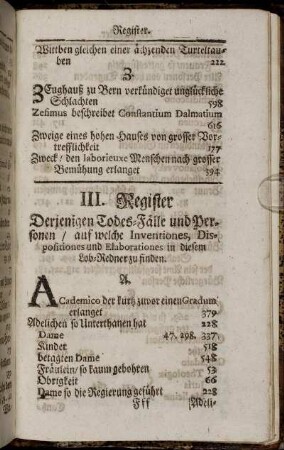 Register.
Wittben gleichen einer ächzenden Turteltau-
ben 222
Z
ZEughauß zu Bern verkündiget unglückliche
Schlachten 598
Zesimus beschreibet Constantium Dalmatium
616
Zweige eines hohen Hauses von grosser Vor-
trefflichkeit 177
Zweck / den laborieuxe Menschen nach grosser
Bemühung erlanget 394
III. Register
Derjenigen Todes-Fälle und Per-
sonen / auf welche Inventiones, Dis-
positiones und Elaborationes in diesem
Lob-Redner zu finden.
A.
ACademico der kurtz zuvor einen Gradum
erlanget 379
Adelichen so Unterthanen hat 228
Dame 47. 298. 337.
Kindet 518
betagten Dame 548
Fräulein / so kaum gebohren 53
Obrigkeit 66
Dame so die Regierung geführt 228
Fff Adeli-